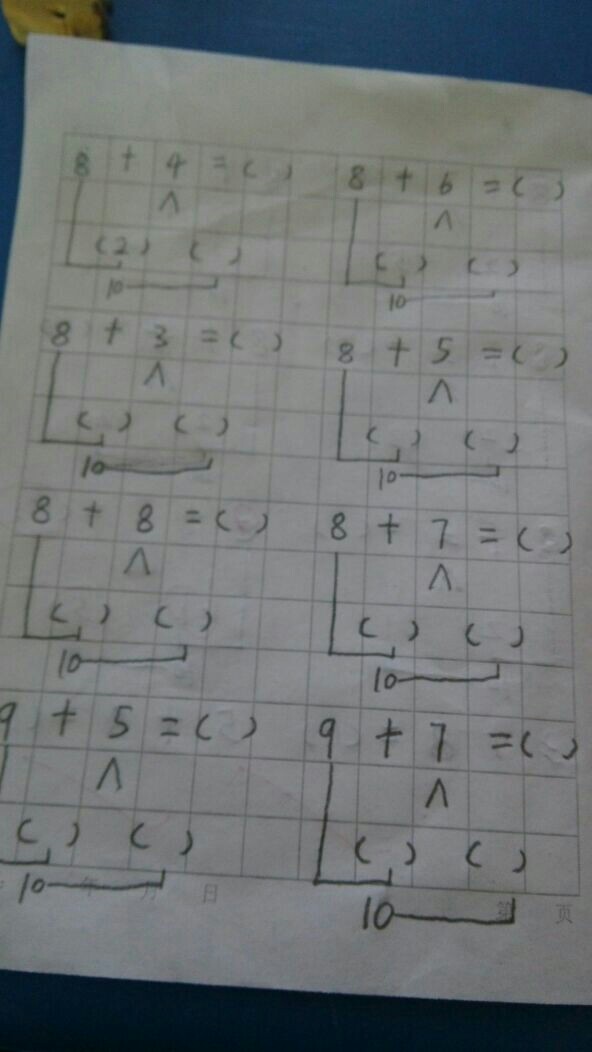 8 + 4 = ( ) 8 + 6 = ( )
∧ ∧
(2) ( ) ( ) ( )
10 10
8 + 3 = ( ) 8 + 5 = ( )
∧ ∧
( ) ( ) ( ) ( )
10 10
8 + 8 = ( ) 8 + 7 = ( )
∧ ∧
( ) ( ) ( ) ( )
10 10
9 + 5 = ( ) 9 + 7 = ( )
∧ ∧
( ) ( ) ( ) ( )
10 10
年 月 日 第 页